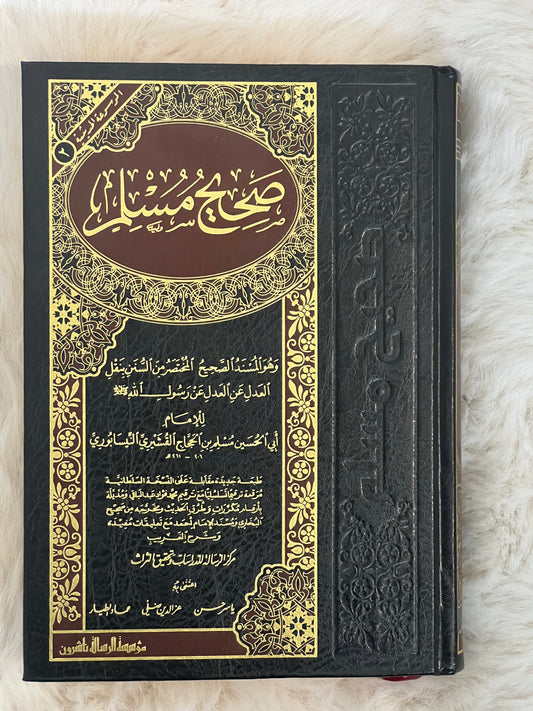 الموسوعة الحديثية
٢
صَحِيحُ مُسْلِمٍ
وَهُوَ المُسْنَدُ الصَّحِيحُ المُخْتَصَرُ مِنَ السُّنَنِ بِنَقْلِ
العَدلِ عَنِ العَدلِ عَنْ رَسُولِ اللهِ ﷺ
لِلإِمَامِ
أَبِي الحُسَيْنِ مُسْلِمِ بنِ الحَجَّاجِ القُشَيْرِيِّ النَّيْسَابُورِيِّ
٢٠٦ - ٢٦١هـ
طبعة جديدة مقابلة على النسخة السلطانية
مرقمة ترقيمًا تسلسليًا مع ترقيم محمد فؤاد عبد الباقي ومذيلة
بأرقام مكررات وطرق الحديث وتخريجه من صحيح
البخاري ومسند الإمام أحمد مع تعليقات مفيدة
وشرح الغريب
مركز الرسالة للدراسات وتحقيق التراث
اعتنى به
ياسر حسن عز الدين ضلي عماد الطيار
مؤسسة الرسالة ناشرون
صحيح مسلم